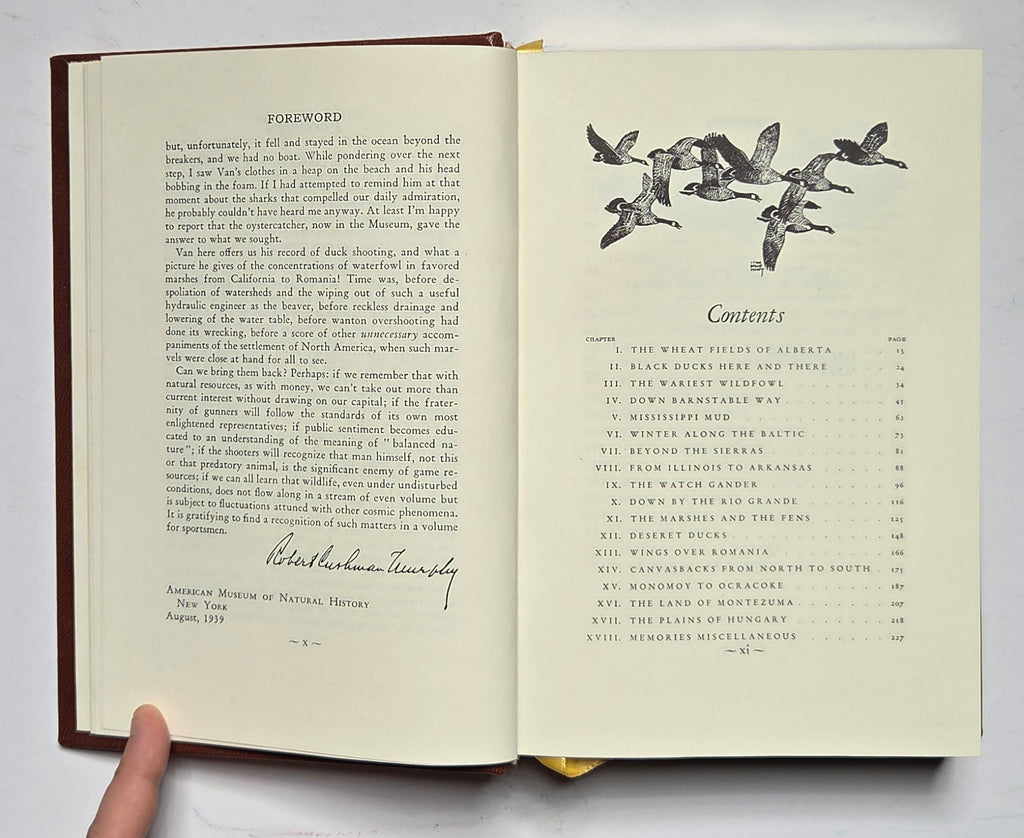 FOREWORD
but, unfortunately, it fell and stayed in the ocean beyond the
breakers, and we had no boat. While pondering over the next
step, I saw Van's clothes in a heap on the beach and his head
bobbing in the foam. If I had attempted to remind him at that
moment about the sharks that compelled our daily admiration,
he probably couldn't have heard me anyway. At least I'm happy
to report that the oystercatcher, now in the Museum, gave the
answer to what we sought.
Van here offers us his record of duck shooting, and what a
picture he gives of the concentrations of waterfowl in favored
marshes from California to Romania! Time was, before de-
spoliation of watersheds and the wiping out of such a useful
hydraulic engineer as the beaver, before reckless drainage and
lowering of the water table, before wanton overshooting had
done its wrecking, before a score of other unnecessary accom-
paniments of the settlement of North America, when such mar-
vels were close at hand for all to see.
Can we bring them back? Perhaps: if we remember that with
natural resources, as with money, we can't take out more than
current interest without drawing on our capital; if the frater-
nity of gunners will follow the standards of its own most
enlightened representatives; if public sentiment becomes edu-
cated to an understanding of the meaning of "balanced na-
ture"; if the shooters will recognize that man himself, not this
or that predatory animal, is the significant enemy of game re-
sources; if we can all learn that wildlife, even under undisturbed
conditions, does not flow along in a stream of even volume but
is subject to fluctuations attuned with other cosmic phenomena.
It is gratifying to find a recognition of such matters in a volume
for sportsmen.
Robert Cushman Murphy
AMERICAN MUSEUM OF NATURAL HISTORY
NEW YORK
August, 1939
~ x ~
Contents
CHAPTER PAGE
I. THE WHEAT FIELDS OF ALBERTA . . 13
II. BLACK DUCKS HERE AND THERE . . . 24
III. THE WARIEST WILDFOWL . . . . . 34
IV. DOWN BARNSTABLE WAY . . . . . . 45
V. MISSISSIPPI MUD . . . . . . . 62
VI. WINTER ALONG THE BALTIC . . . . . 73
VII. BEYOND THE SIERRAS . . . . . . 81
VIII. FROM ILLINOIS TO ARKANSAS . . . . 88
IX. THE WATCH GANDER . . . . . . 96
X. DOWN BY THE RIO GRANDE . . . . . 116
XI. THE MARSHES AND THE FENS . . . . 125
XII. DESERET DUCKS . . . . . . . 148
XIII. WINGS OVER ROMANIA . . . . . . 166
XIV. CANVASBACKS FROM NORTH TO SOUTH . . 175
XV. MONOMOY TO OCRACOKE . . . . . 187
XVI. THE LAND OF MONTEZUMA . . . . . 207
XVII. THE PLAINS OF HUNGARY . . . . . 218
XVIII. MEMORIES MISCELLANEOUS . . . . . 227
~ xi ~